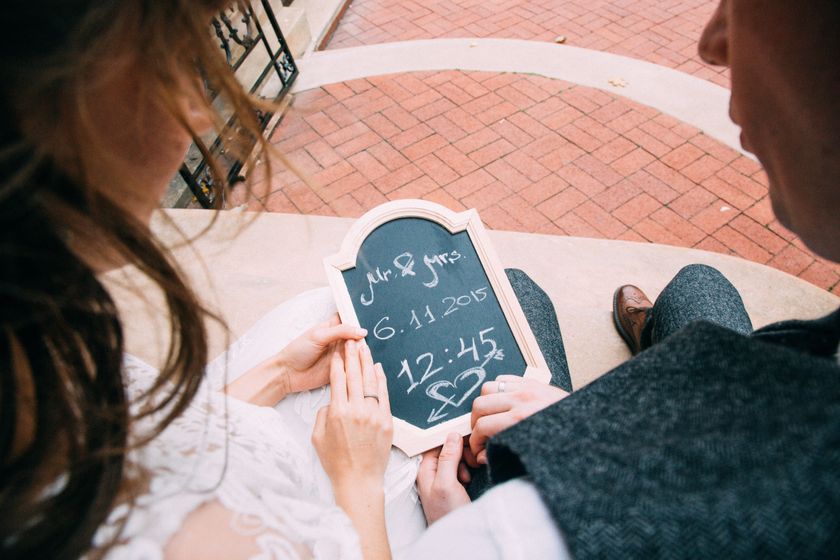 Mr. & Mrs.
6.11.2015
12:45